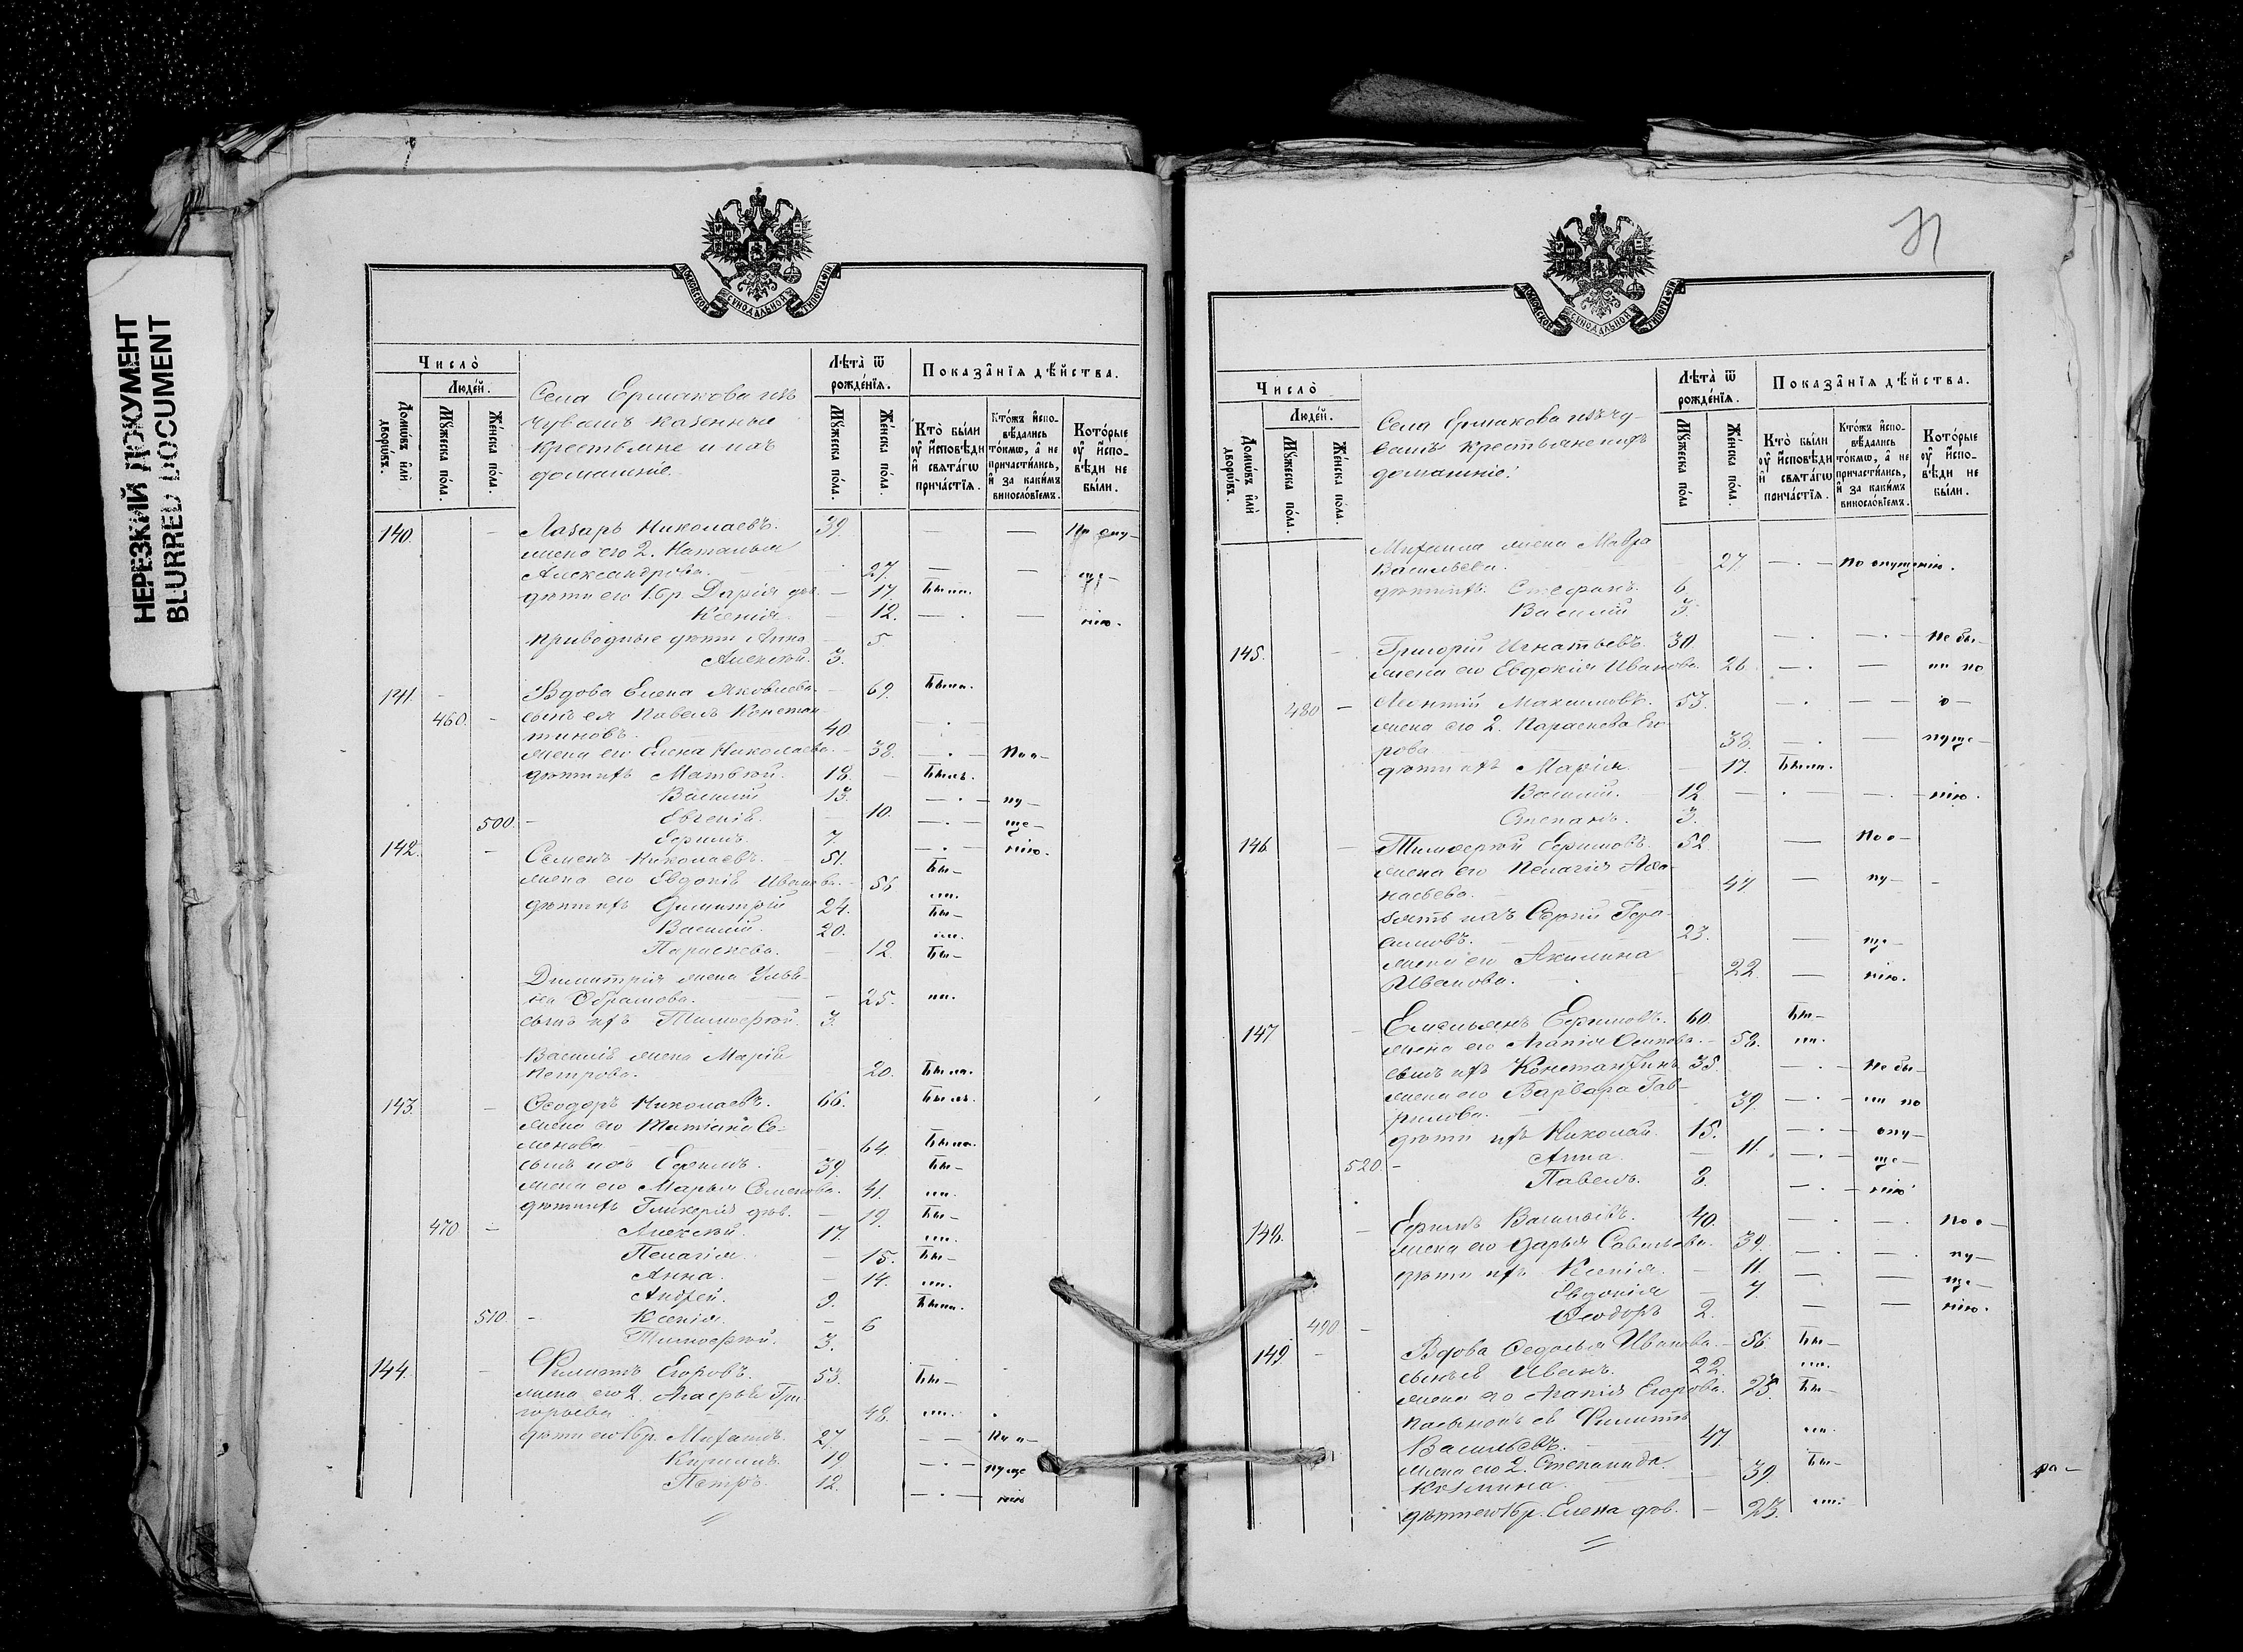 НЕРЕЗКИЙ ДОКУМЕНТ
BLURRED DOCUMENT
МОСКОВСКОЙ СѴНОДАЛЬНОЙ ТИПОГРАФІИ
Число̀
Людей.
Домѡвъ или дворѡвъ.
Мꙋжеска пола.
Женска пола.
Села Ермакова изъ
чувашъ казенные
крестьяне и ихъ
домашніе.
Лѣта ѿ рожденїя.
Мꙋжеска пола.
Женска пола.
Показанїя дѣйства.
Кто были оу исповѣди и свѧтагѡ причастїя.
Ктожъ исповѣдались токмѡ, а не причастились, и за какимъ винословїемъ.
Которые оу исповѣди не были.
140. Лазарь Николаевъ. 39. — — По опу—
жена его 2. Наталья
Александрова. 27. — — ще—
дѣти его 1 бр. Дарія дѣв. — 17. Были.
Ксенія — 12. — — нію.
приводные дѣти Анна — 5.
Алексѣй. 3.
141. Вдова Елена Яковлева. — 69. Была.
460. сынъ ея Павелъ Констан-
тиновъ. 40
жена его Елена Николаева. — 38. — По о—
дѣти ихъ Матвѣй. 18. — Былъ.
Василій 13. — пу—
500. Евгенія. — 10. — ще—
Ефимъ. 7. — нію.
142. Семенъ Николаевъ. 51. Бы—
жена его Евдокія Иванова. — 56 ли.
дѣти ихъ Димитрій 24. Бы—
Василій. 20. ли.
Параскева. — 12. Бы—
Димитрія жена Улья-
на Абрамова. — 25. ли.
сынъ ихъ Тимоѳей. 3.
Василія жена Марія
Петрова. 20. Была.
143. Ѳеодоръ Николаевъ. 66. Былъ.
жена его Татіана Се-
менова 64. Была.
сынъ ихъ Ефимъ. 39. Бы—
жена его Марья Семенова. 41. ли.
дѣти ихъ Гликерія дѣв. — 19. Бы—
470. Алексѣй. 17. ли.
Пелагія. — 15. Бы—
Анна. — 14. ли.
Андрей. 9. Были.
510. Ксенія. — 6
Тимоѳей. 3.
144. Филиппъ Егоровъ. 53. Бы—
жена его 2. Агафья Гри-
горьева 48. ли.
дѣти его 1 бр. Михаилъ. 27. — По о—
Кириллъ. 19. — пуще
Петръ. 12. — нію
МОСКОВСКОЙ СѴНОДАЛЬНОЙ ТИПОГРАФІИ
Число̀
Людей.
Домѡвъ или дворѡвъ.
Мꙋжеска пола.
Женска пола.
Села Ермакова изъ чу-
вашъ крестьяне и ихъ
домашніе.
Лѣта ѿ рожденїя.
Мꙋжеска пола
Женска пола.
Показанїя дѣйства.
Кто были оу исповѣди и свѧтагѡ причастїя.
Ктожъ исповѣдались токмѡ, а не причастились, и за какимъ винословїемъ.
Которые оу исповѣди не были.
Михаила жена Мавра
Васильева. 27 — По опущенію.
дѣти ихъ Стефанъ. 6.
Василій 3.
145. Григорій Игнатьевъ. 30. — — Не бы—
жена его Евдокія Иванова. 26. — — ли по
480 Максимовъ. 53. — — о—
жена его 2. Параскева Его-
рова 38. — — пуще—
дѣти ихъ Марія. — 17. Была.
Василій. 12 — — нію.
Степанъ. 3.
146 Тимоѳей Ефимовъ. 52. — По о—
жена его Пелагія Аѳа-
насьева. 47 — пу—
зять ихъ Сергій
23. — ще—
жена его Акилина
Иванова. 22. — нію.
147 Емельянъ Ефимовъ. 60. Бы—
жена его Агапія Осипова. — 58. ли.
сынъ ихъ Константинъ 35. — Не бы—
жена его Варвара Гав-
рилова. 39. — ли по
дѣти ихъ Николай. 15. — опу—
520. Анна. — 11. — ще—
Павелъ. 8. — нію
148. Ефимъ Васильевъ. 40. — — По о—
жена его Дарья Савельева. 39. — — пу—
дѣти ихъ Ксенія. — 11. — — ще—
Евдокія — 7. — — нію.
490 Ѳеодоръ 2.
149 Вдова Ѳедосья Иванова. — 56. Бы—
сынъ ея Иванъ. 22. ли.
жена его Агапія Егорова. 23. Бы—
пасынокъ ея Филиппъ
Васильевъ. 47. ли.
жена его 2. Степанида
Козмина. 39 Бы—
дѣти его 1 бр. Елена дѣв. — 23. ли.
ра—